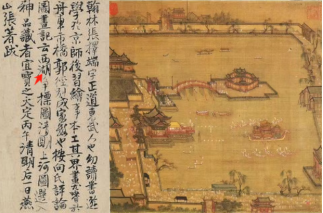 翰林張擇端字正道東武人也幼讀書遊
學於京師後習繪事本工其界畫尤嗜於
舟車市橋郭徑別成家數也按向氏評論
圖畫記云西湖爭標圖清明上河圖選入
神品藏者宜寶之大定丙午清明後一日燕
山張著跋